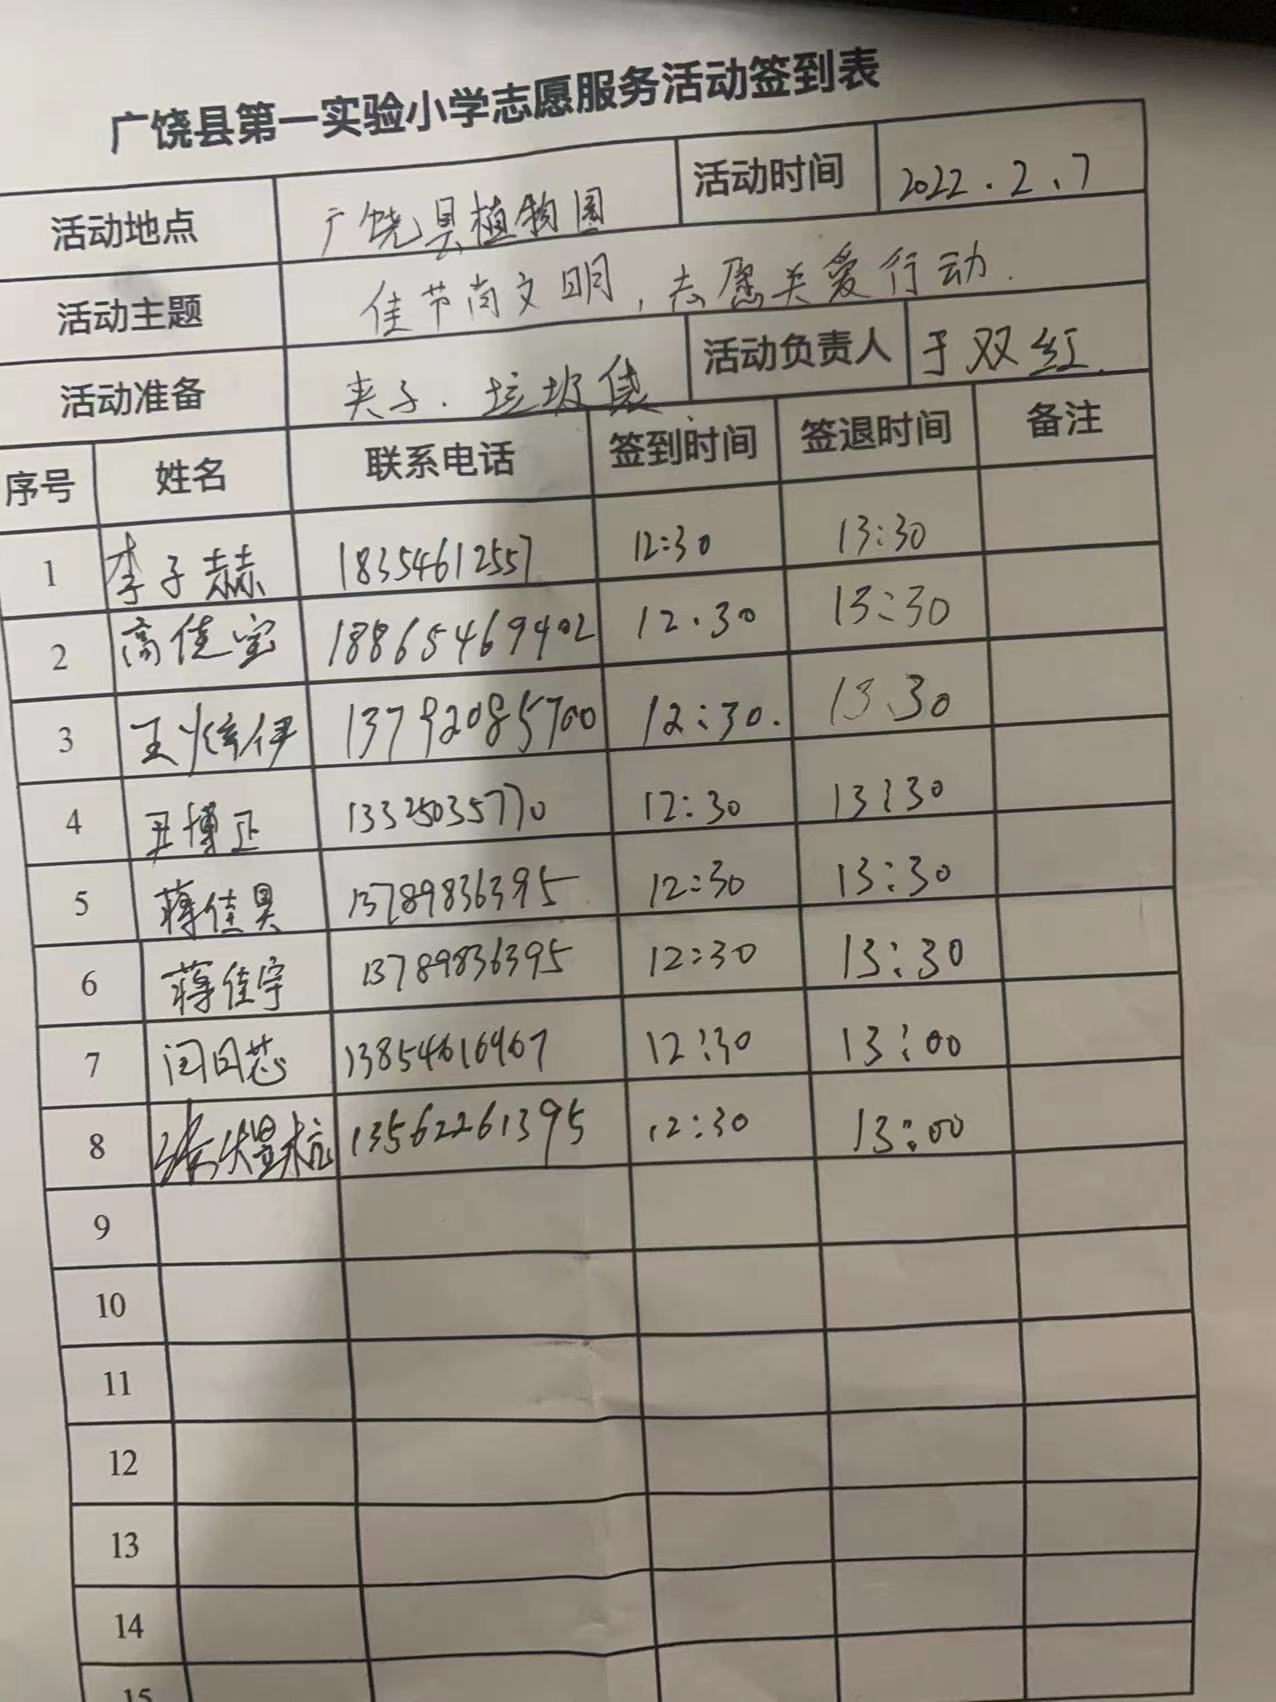 广饶县第一实验小学志愿服务活动签到表
活动地点 广饶县植物园 活动时间 2022.2.7
活动主题 佳节尚文明,志愿关爱行动.
活动准备 夹子.垃圾袋 活动负责人 于双红
序号 姓名 联系电话 签到时间 签退时间 备注
1 李子赫 18354612557 12:30 13:30
2 高佳宝 18865469402 12.30 13:30
3 王 伊 13792085700 12:30. 13.30
4 尹博正 13325035770 12:30 13:30
5 蒋佳昊 13789836395 12:30 13:30
6 蒋佳宇 13789836395 12:30 13:30
7 闫日芯 13854616967 12:30 13:00
8 13562261395 12:30 13:00
9
10
11
12
13
14
15